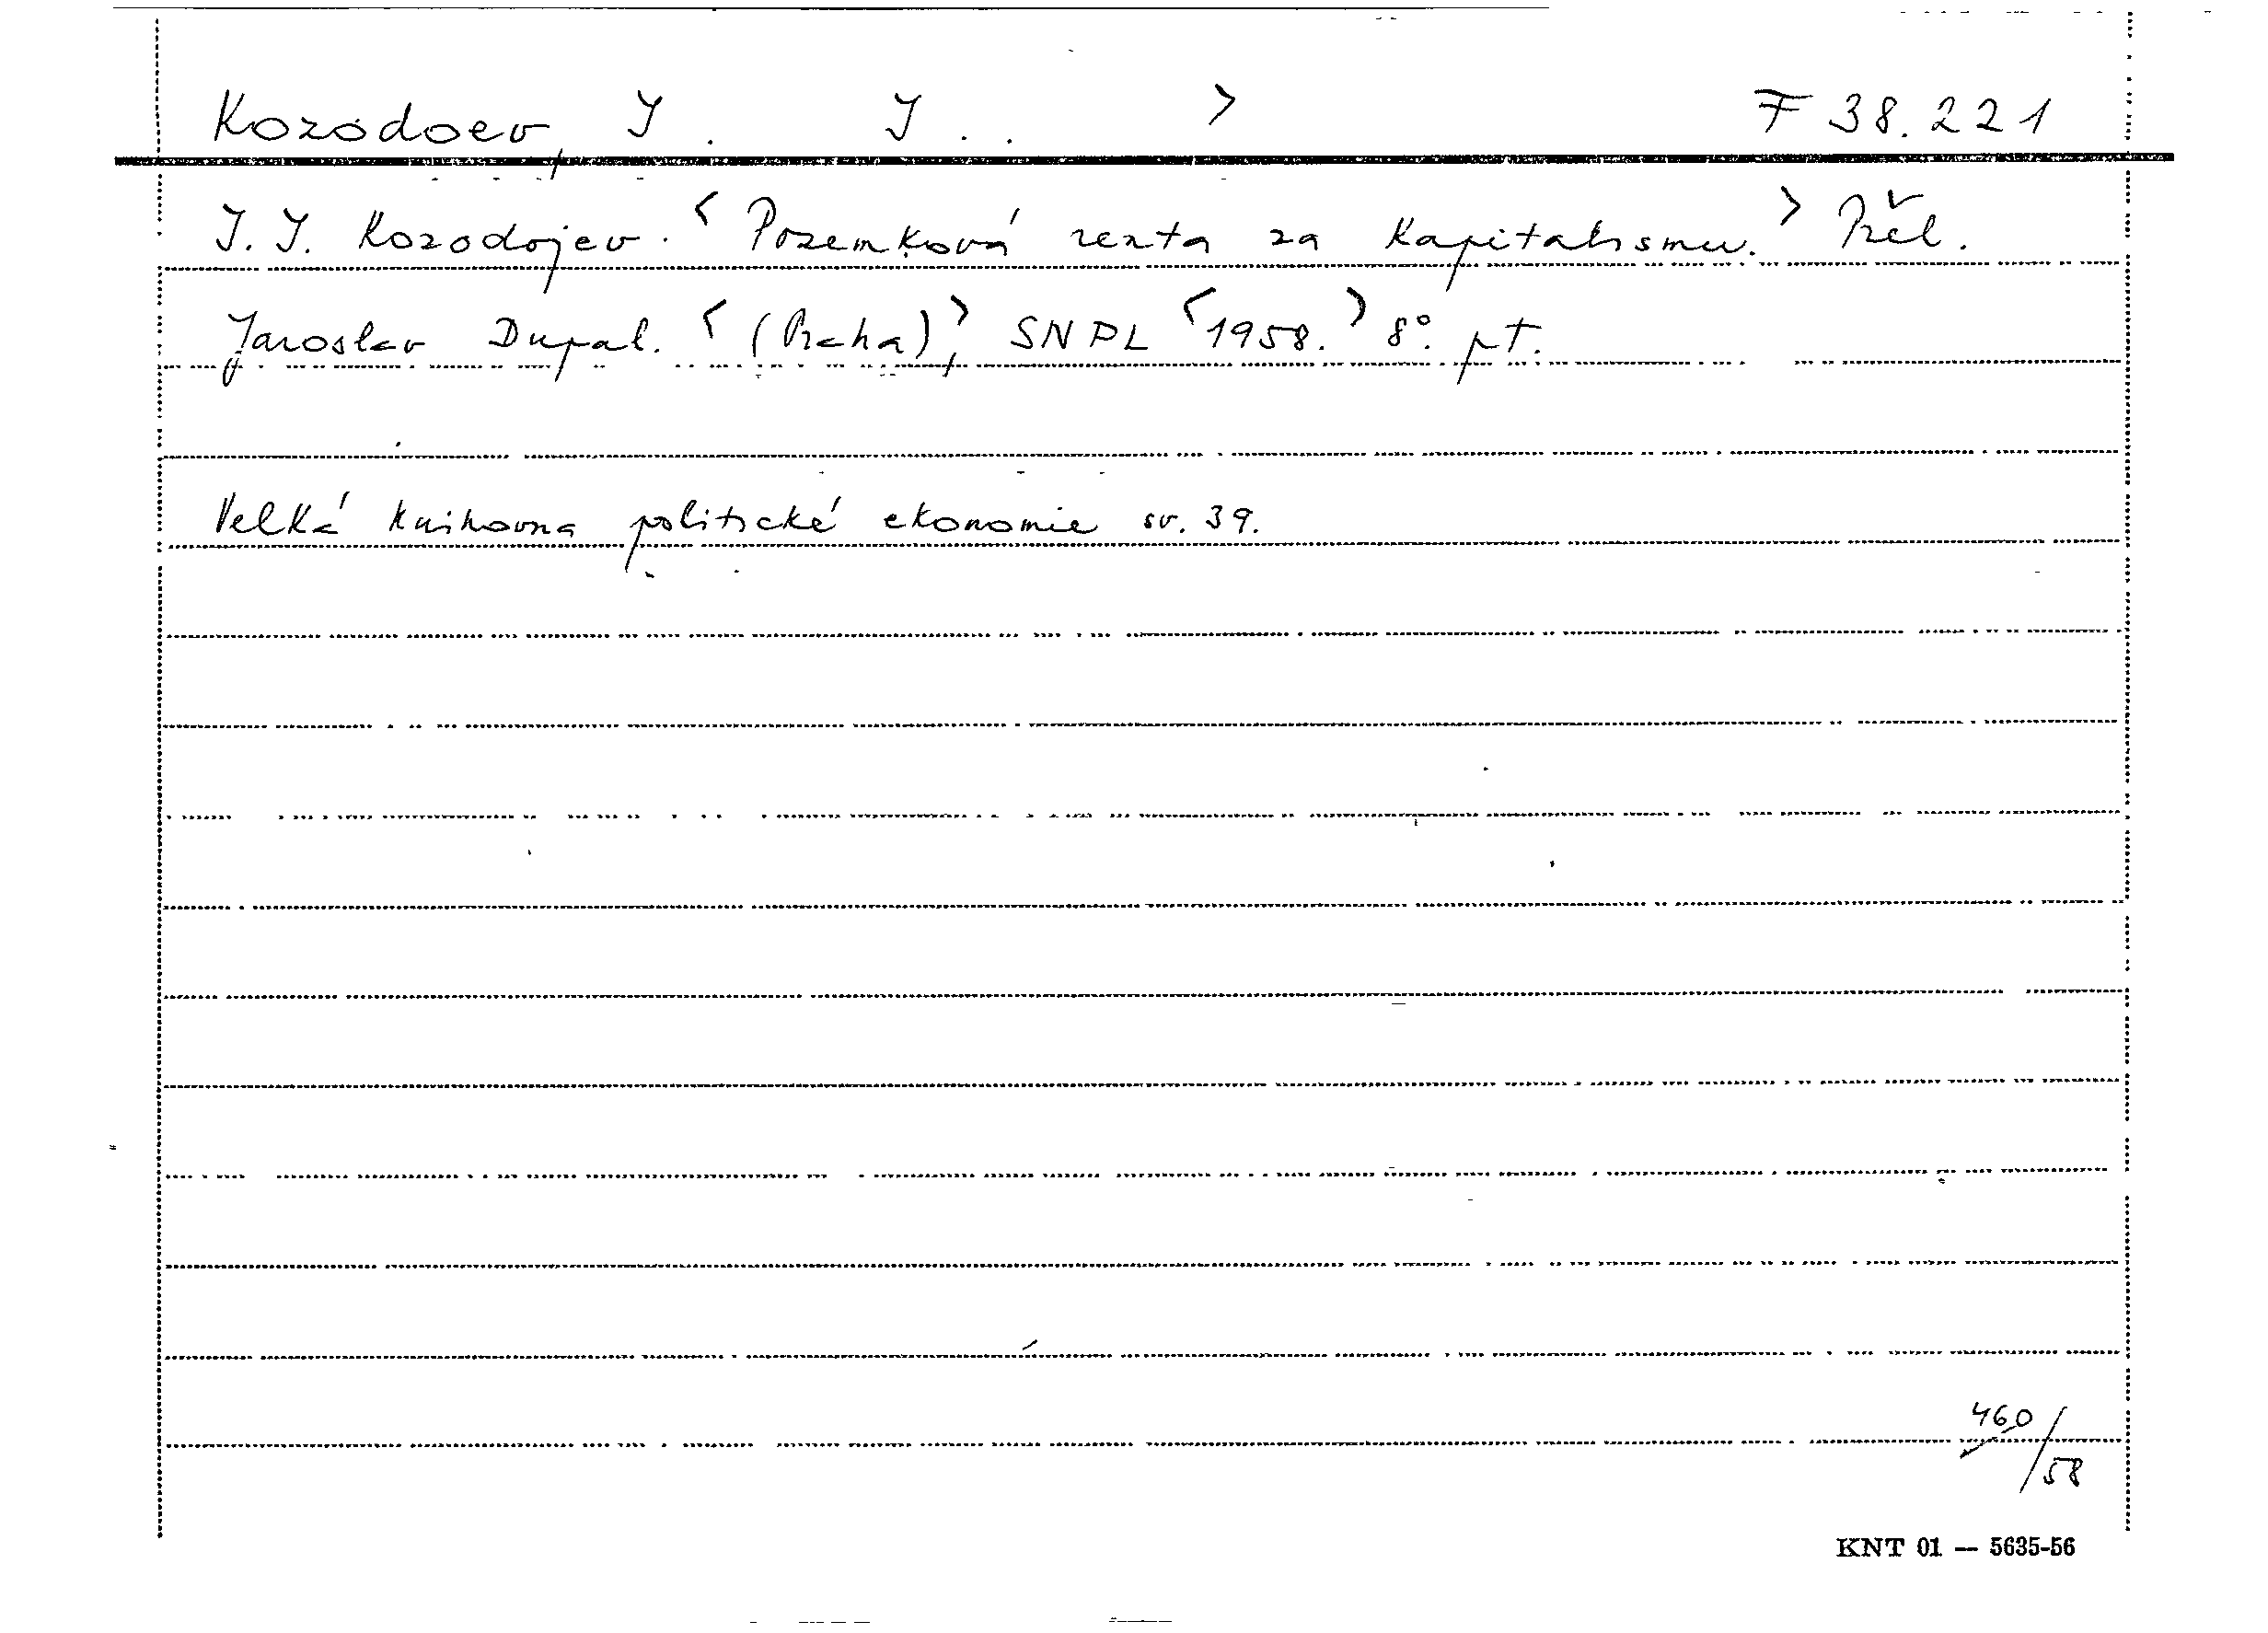 Kozodoev, I. I.. > F 38.221
I. I. Kozodojev. < Pozemková renta za kapitalismu. > Přel.
Jaroslav Dupal. < (Praha), > SNPL < 1958. > 8°. pt.
Velká knihovna politické ekonomie sv. 39.
460/58
KNT 01 — 5635-56